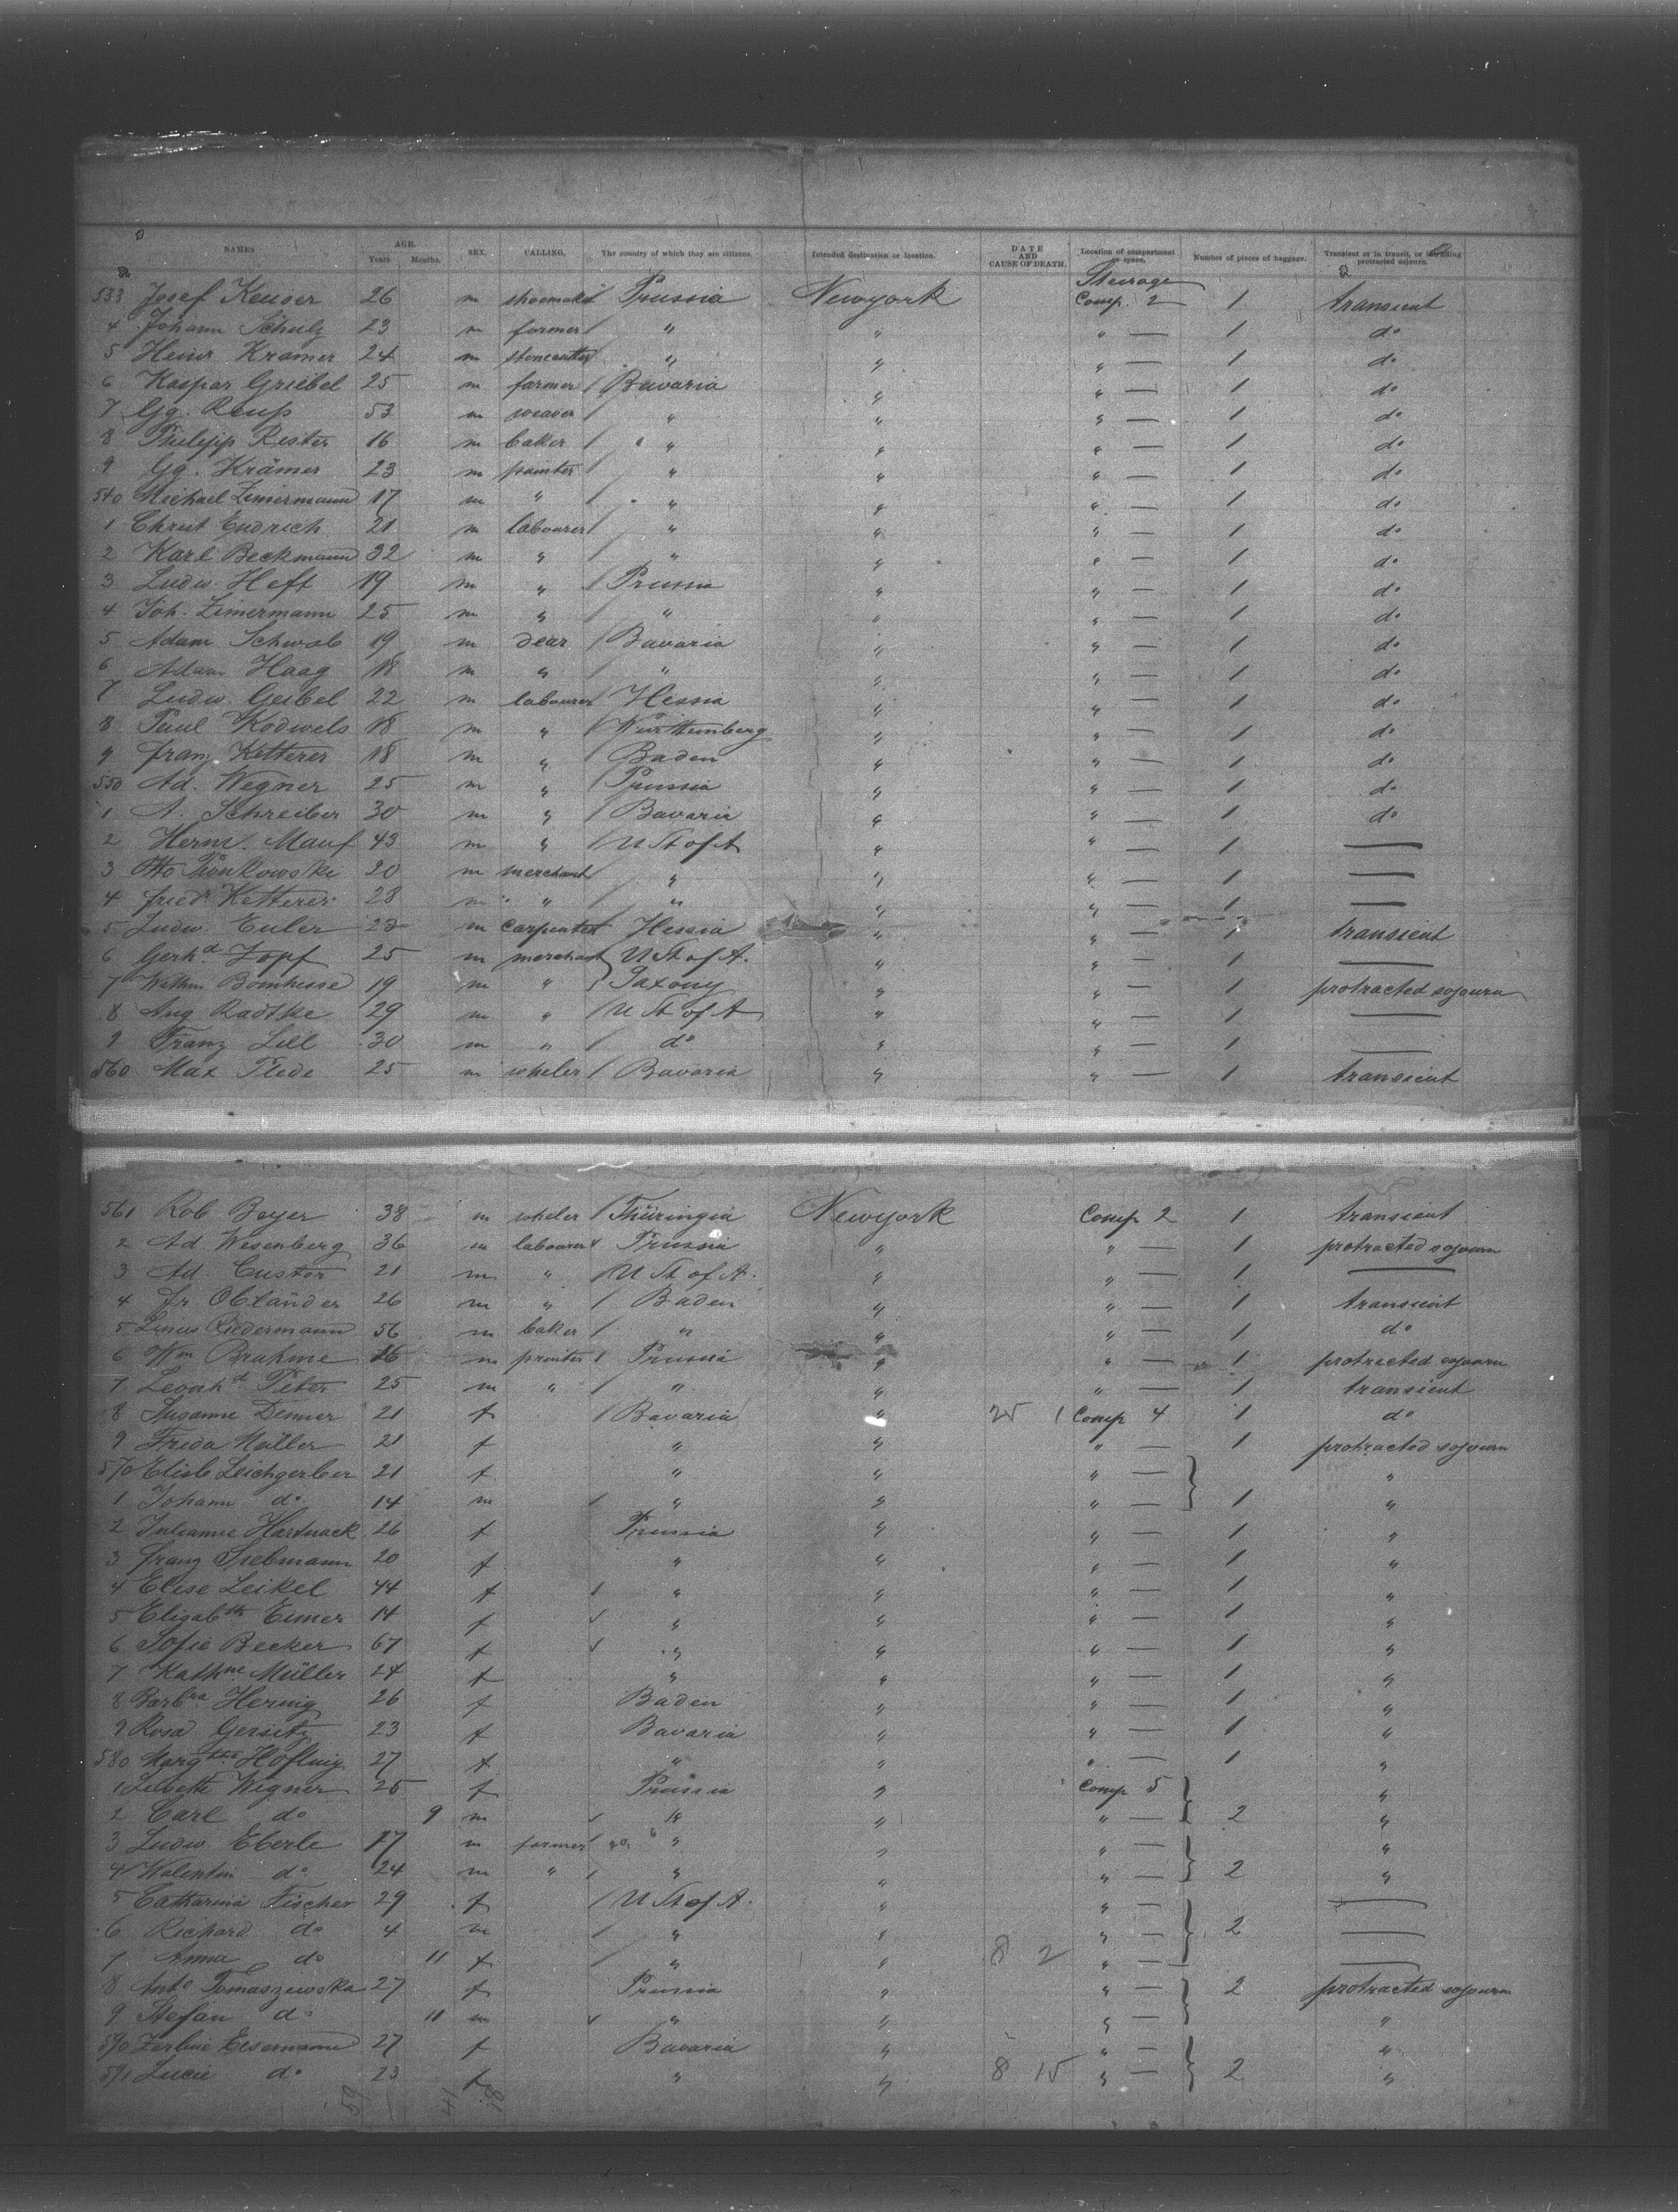 NAMES AGE. Years. Months. SEX. CALLING. The country of which they are citizens. Intended destination or location. DATE AND CAUSE OF DEATH. Location of compartment or space. Number of pieces of baggage. Transient or in transit, or intending protracted sojourn.
Steerage
533 Josef Keuser 26 m shoemaker Prussia Newyork Comp. 2 1 transient
4 Johann Schulz 23 m farmer / " " " — 1 do
5 Heinr Kramer 24 m stonecutter " " " — 1 do
6 Kaspar Griebel 25 m farmer / Bavaria " " — 1 do
7 Gg. Reuß 53 m weaver / " " " — 1 do
8 Philipp Rester 16 m baker / " " " — 1 do
9 Gg. Krämer 23 m painter / " " " — 1 do
540 Michael Zimermann 17 m " / " " " — 1 do
1 Christ Endrich 21 m labourer / " " " — 1 do
2 Karl Beckmann 32 m " / " " " — 1 do
3 Ludw. Heft 19 m " / Prussia " " — 1 do
4 Joh. Zimermann 25 m " / " " " — 1 do
5 Adam Schwab 19 m dear / Bavaria " " — 1 do
6 Adam Haag 18 m " " " " — 1 do
7 Ludw. Geibel 22 m labourer Hessia " " — 1 do
8 Paul Kodwels 18 m " / Württemberg " " — 1 do
9 Franz Ketterer 18 m " / Baden " " — 1 do
550 Ad. Wegner 25 m " / Prussia " " — 1 do
1 A. Schreiber 30 m " / Bavaria " " — 1 do
2 Herm. Mauf 43 m " / U St of A " " — 1 —
3 Otto 20 m merchant / " " " — 1 —
4 Friedr Ketterer 28 m " / " " " — 1 —
5 Ludw. Euler 23 m carpenter Hessia " " — 1 transient
6 Gerhd Zopf 25 m merchant U St of A. " " — 1 —
7 19 m " / Saxony " " — 1 protracted sojourn
8 Aug Radtke 29 m " / U St of A " " — 1 —
9 Franz Lill 30 m " / do " " — 1 —
560 Max Flede 25 m wheler / Bavaria " " — 1 transient
561 Rob Beyer 38 m wheler / Thüringia Newyork Comp 2 1 transient
2 Ad. Wesenberg 36 m labourer Prussia " " — 1 protracted sojourn
3 Ad. Custor 21 m " / U St of A. " " — 1 —
4 Fr. Obländer 26 m " / Baden " " — 1 transient
5 Linus Riedermann 56 m baker / " " " — 1 do
6 Wm Brahme 16 m printer / Prussia " " — 1 protracted sojourn
7 Leonhd Peter 25 m " / " " " — 1 transient
8 Susanne Demer 21 f / Bavaria " 25 1 Comp 4 1 do
9 Frieda Müller 21 f " " " — 1 protracted sojourn
570 Elisb Leichgerber 21 f " " " — "
1 Johann do 14 m / " " " — 1 "
2 Julianne Hartnack 26 f Prussia " " — 1 "
3 Franz Siebmann 20 f " " " — 1 "
4 Elise Leikel 44 f / " " " — 1 "
5 Elisabth Eumer 14 f " " " — 1 "
6 Sofie Becker 67 f " " " — 1 "
7 Kathne Müller 24 f " " " — 1 "
8 Barbra Hernig 26 f Baden " " — 1 "
9 Rosa Gersitz 23 f Bavaria " " — 1 "
580 Margthe Höfling 27 f " " " — 1 "
1 Lisbeth Wegner 25 f Prussia " Comp 5 "
2 Carl do 9 m " " " — 2 "
3 Ludw. Eberle 17 m farmer / " " " — "
4 Valentin do 24 m " / " " " — 2 "
5 Catharina Fischer 29 f / U St of A. " " — —
6 Richard do 4 m / " " " — 2 —
7 Anna do 11 f / " " 8 2 " — —
8 Anta Tomaszewska 27 f Prussia " " — 2 protracted sojourn
9 Stefan do 11 m " " " — "
590 Zerline Eisemann 27 f Bavaria " " — "
591 Lucie do 23 f " " 8 15 " — 2 "
59 41 18